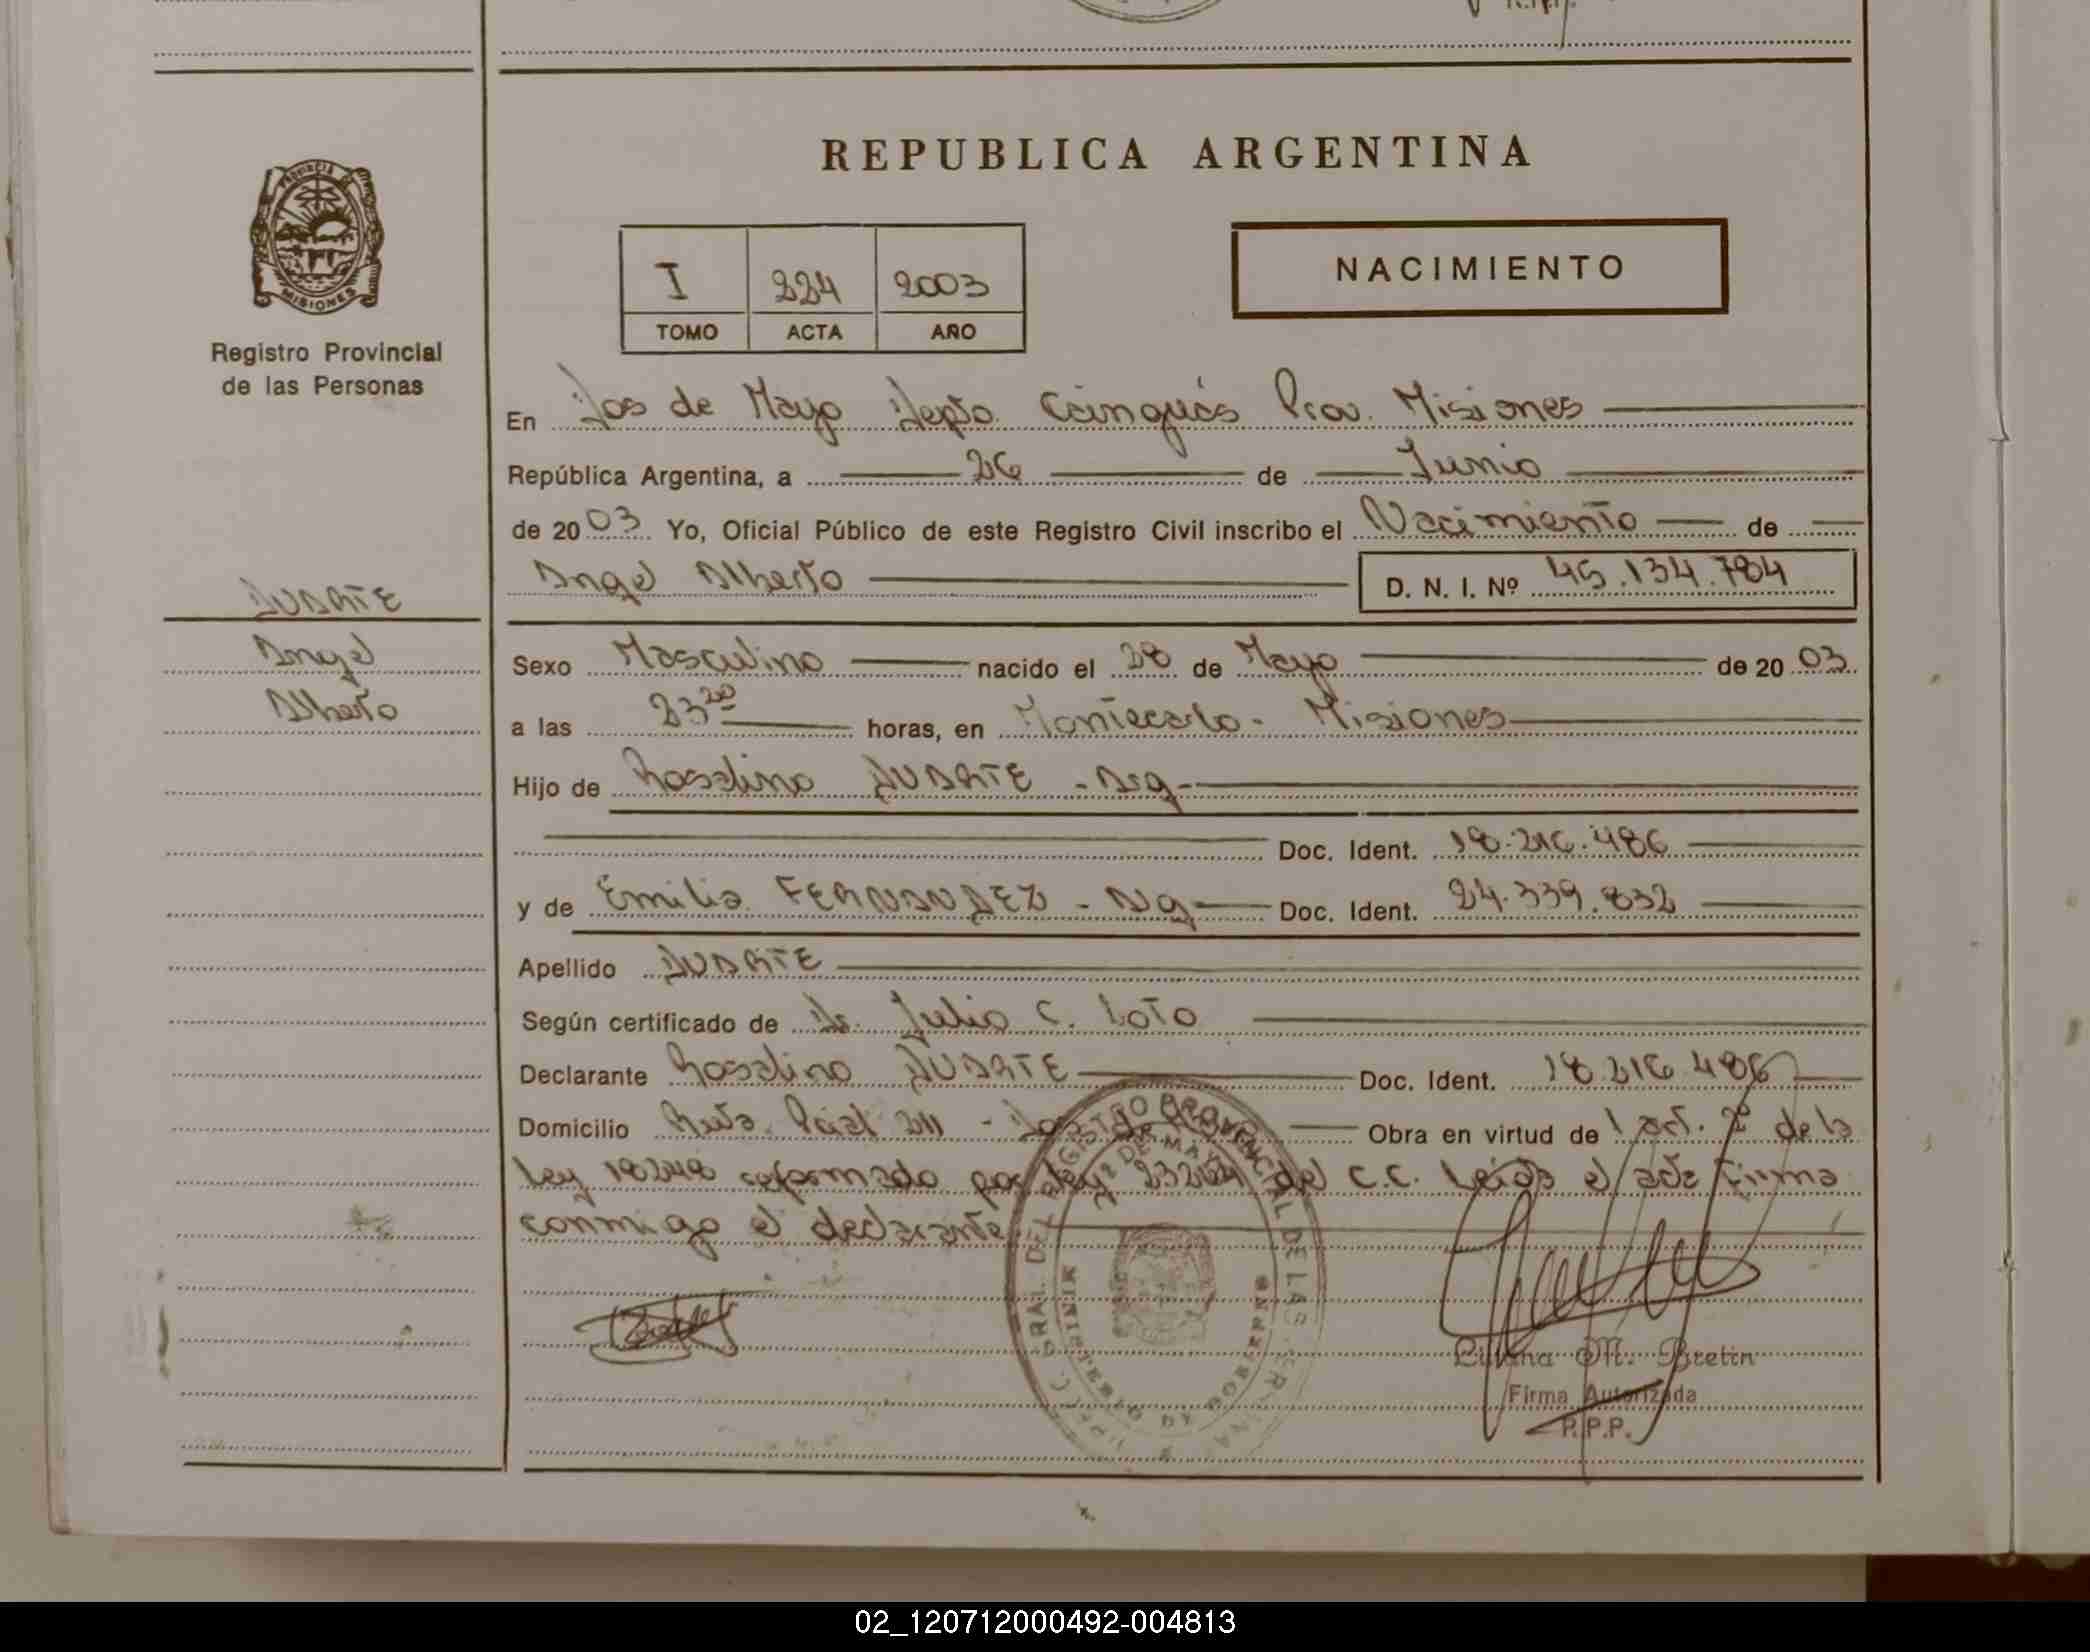 REPUBLICA ARGENTINA
PROVINCIA DE
MISIONES
Registro Provincial
de las Personas
I 224 2003
TOMO ACTA AÑO
NACIMIENTO
En Dos de Mayo Depto. Cainguás Prov. Misiones
República Argentina, a 26 de Junio
de 2003 Yo, Oficial Público de este Registro Civil inscribo el Nacimiento de
Angel Alberto D. N. I. Nº 45.134.784
DUARTE
Angel
Alberto
Sexo Masculino nacido el 28 de Mayo de 2003
a las 23 20 horas, en Montecarlo - Misiones
Hijo de Rosalino DUARTE - Arg -
Doc. Ident. 18.216.486
y de Emilia FERNANDEZ - Arg Doc. Ident. 24.339.832
Apellido DUARTE
Según certificado de Dr. Julio C. Loto
Declarante Rosalino DUARTE Doc. Ident. 18.216.486
Domicilio Ruta Pcial 211 - Dos de Obra en virtud de l art. 2º de la
Ley 18248 reformado por ley 23264 del C.C. Leída el acta Firma
conmigo el declarante
REGISTRO PROVINCIAL DE LAS
2 DE MAYO
MINISTERIO DE GOBIERNO
M. Bretin
Firma Autorizada
R.P.P.
02_120712000492-004813